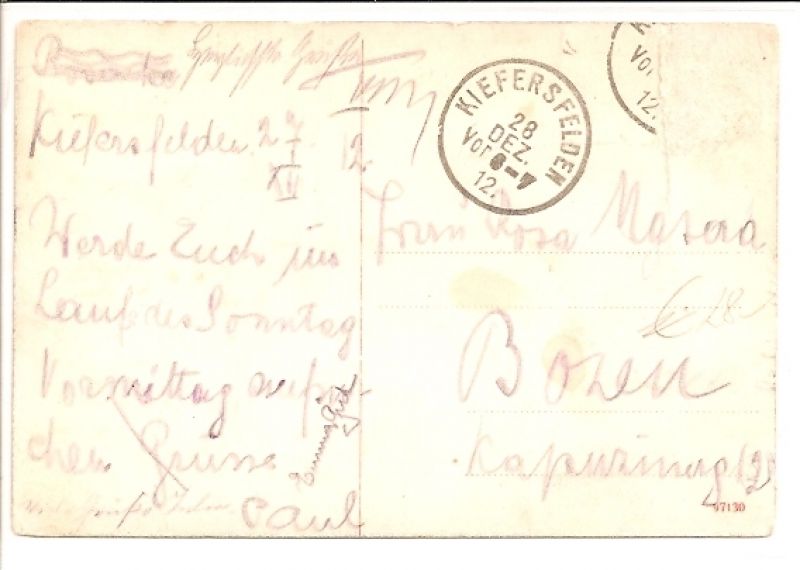 Herzlichste Grüße
Kiefersfelden 27/XII 12.
Werde Euch im
Lauf des Sonntag
Vormittag aufsu-
chen Grüsse
Paul
KIEFERSFELDEN
28
DEZ.
Vor 6-7
12.
K
Vor
12.
Frau Rosa Masera
Bozen
Kapuzinerg
€ 28
07130